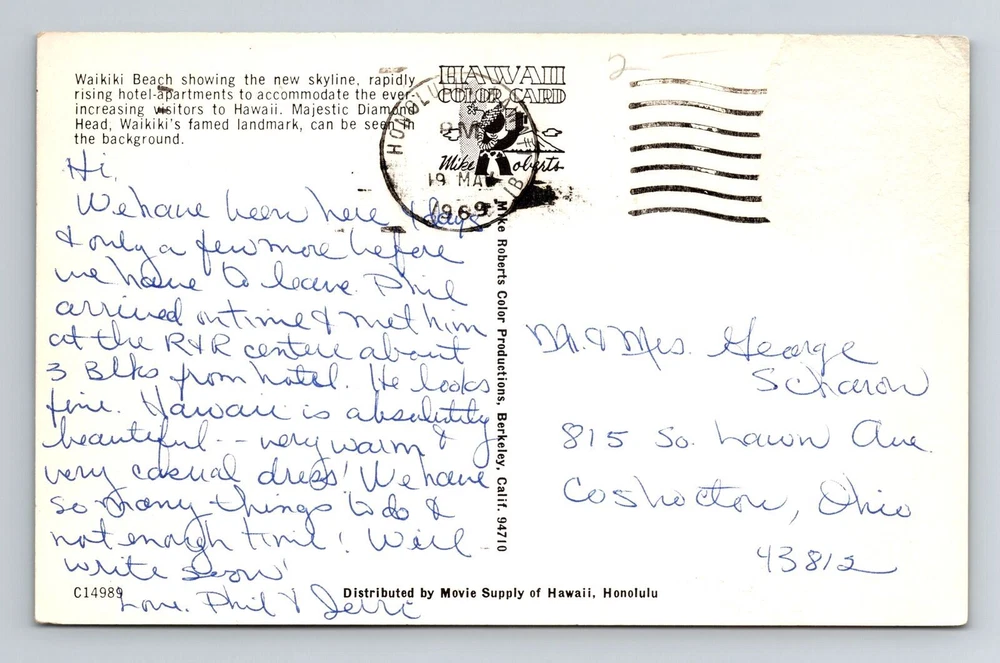 Waikiki Beach showing the new skyline, rapidly
rising hotel-apartments to accommodate the ever-
increasing visitors to Hawaii. Majestic Diamond
Head, Waikiki's famed landmark, can be seen in
the background.
HAWAII
COLOR CARD
Mike Roberts
HONOLULU
19 MAY
1969
2
Hi,
We have been here 4 days
& only a few more before
we have to leave. Phil
arrived on time & met him
at the R&R center about
3 Blks from hotel. He looks
fine. Hawaii is absolutely
beautiful -- very warm &
very casual dress! We have
so many things to do &
not enough time! Will
write soon!
Love, Phil & Jerri
Mike Roberts Color Productions, Berkeley, Calif. 94710
Mr. & Mrs. George
Scharow
815 So. Lawn Ave.
Coshocton, Ohio
43812
C14989
Distributed by Movie Supply of Hawaii, Honolulu